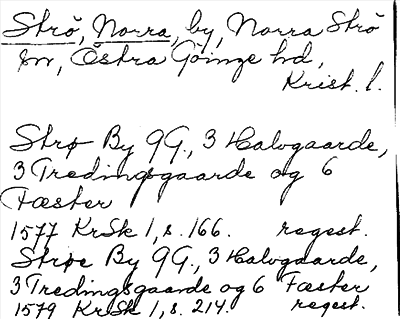 Strö, Norra, by, Norra Strö
sn, Östra Göinge hd,
Krist. l.
Strø By 9G., 3 Halvgaarde,
3 Tredingsgaarde og 6
Fæster
1577 KrSk 1, s. 166. regest.
Strøe By 9G., 3 Halvgaarde,
3 Tredingsgaarde og 6 Fæster
1579 KrSk 1, s. 214. regest.